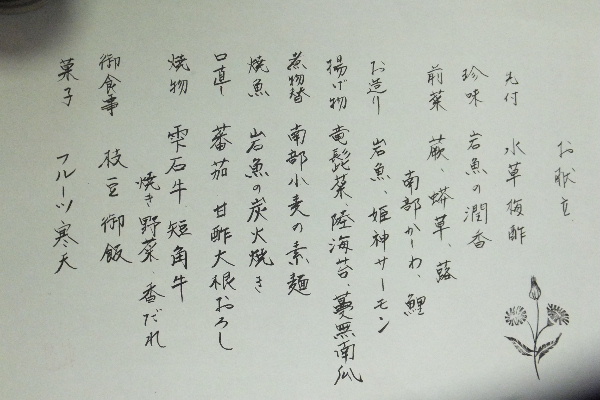 お献立
先付 水草梅酢
珍味 岩魚の潤香
前菜 蕨、蟒草、蕗
南部かしわ、鯉
お造り 岩魚、姫神サーモン
揚げ物 竜髭菜、陸海苔、蔓無南瓜
煮物替 南部小麦の素麺
焼魚 岩魚の炭火焼き
口直し 蕃茄 甘酢大根おろし
焼物 雫石牛 短角牛
焼き野菜、香だれ
御食事 枝豆御飯
菓子 フルーツ寒天